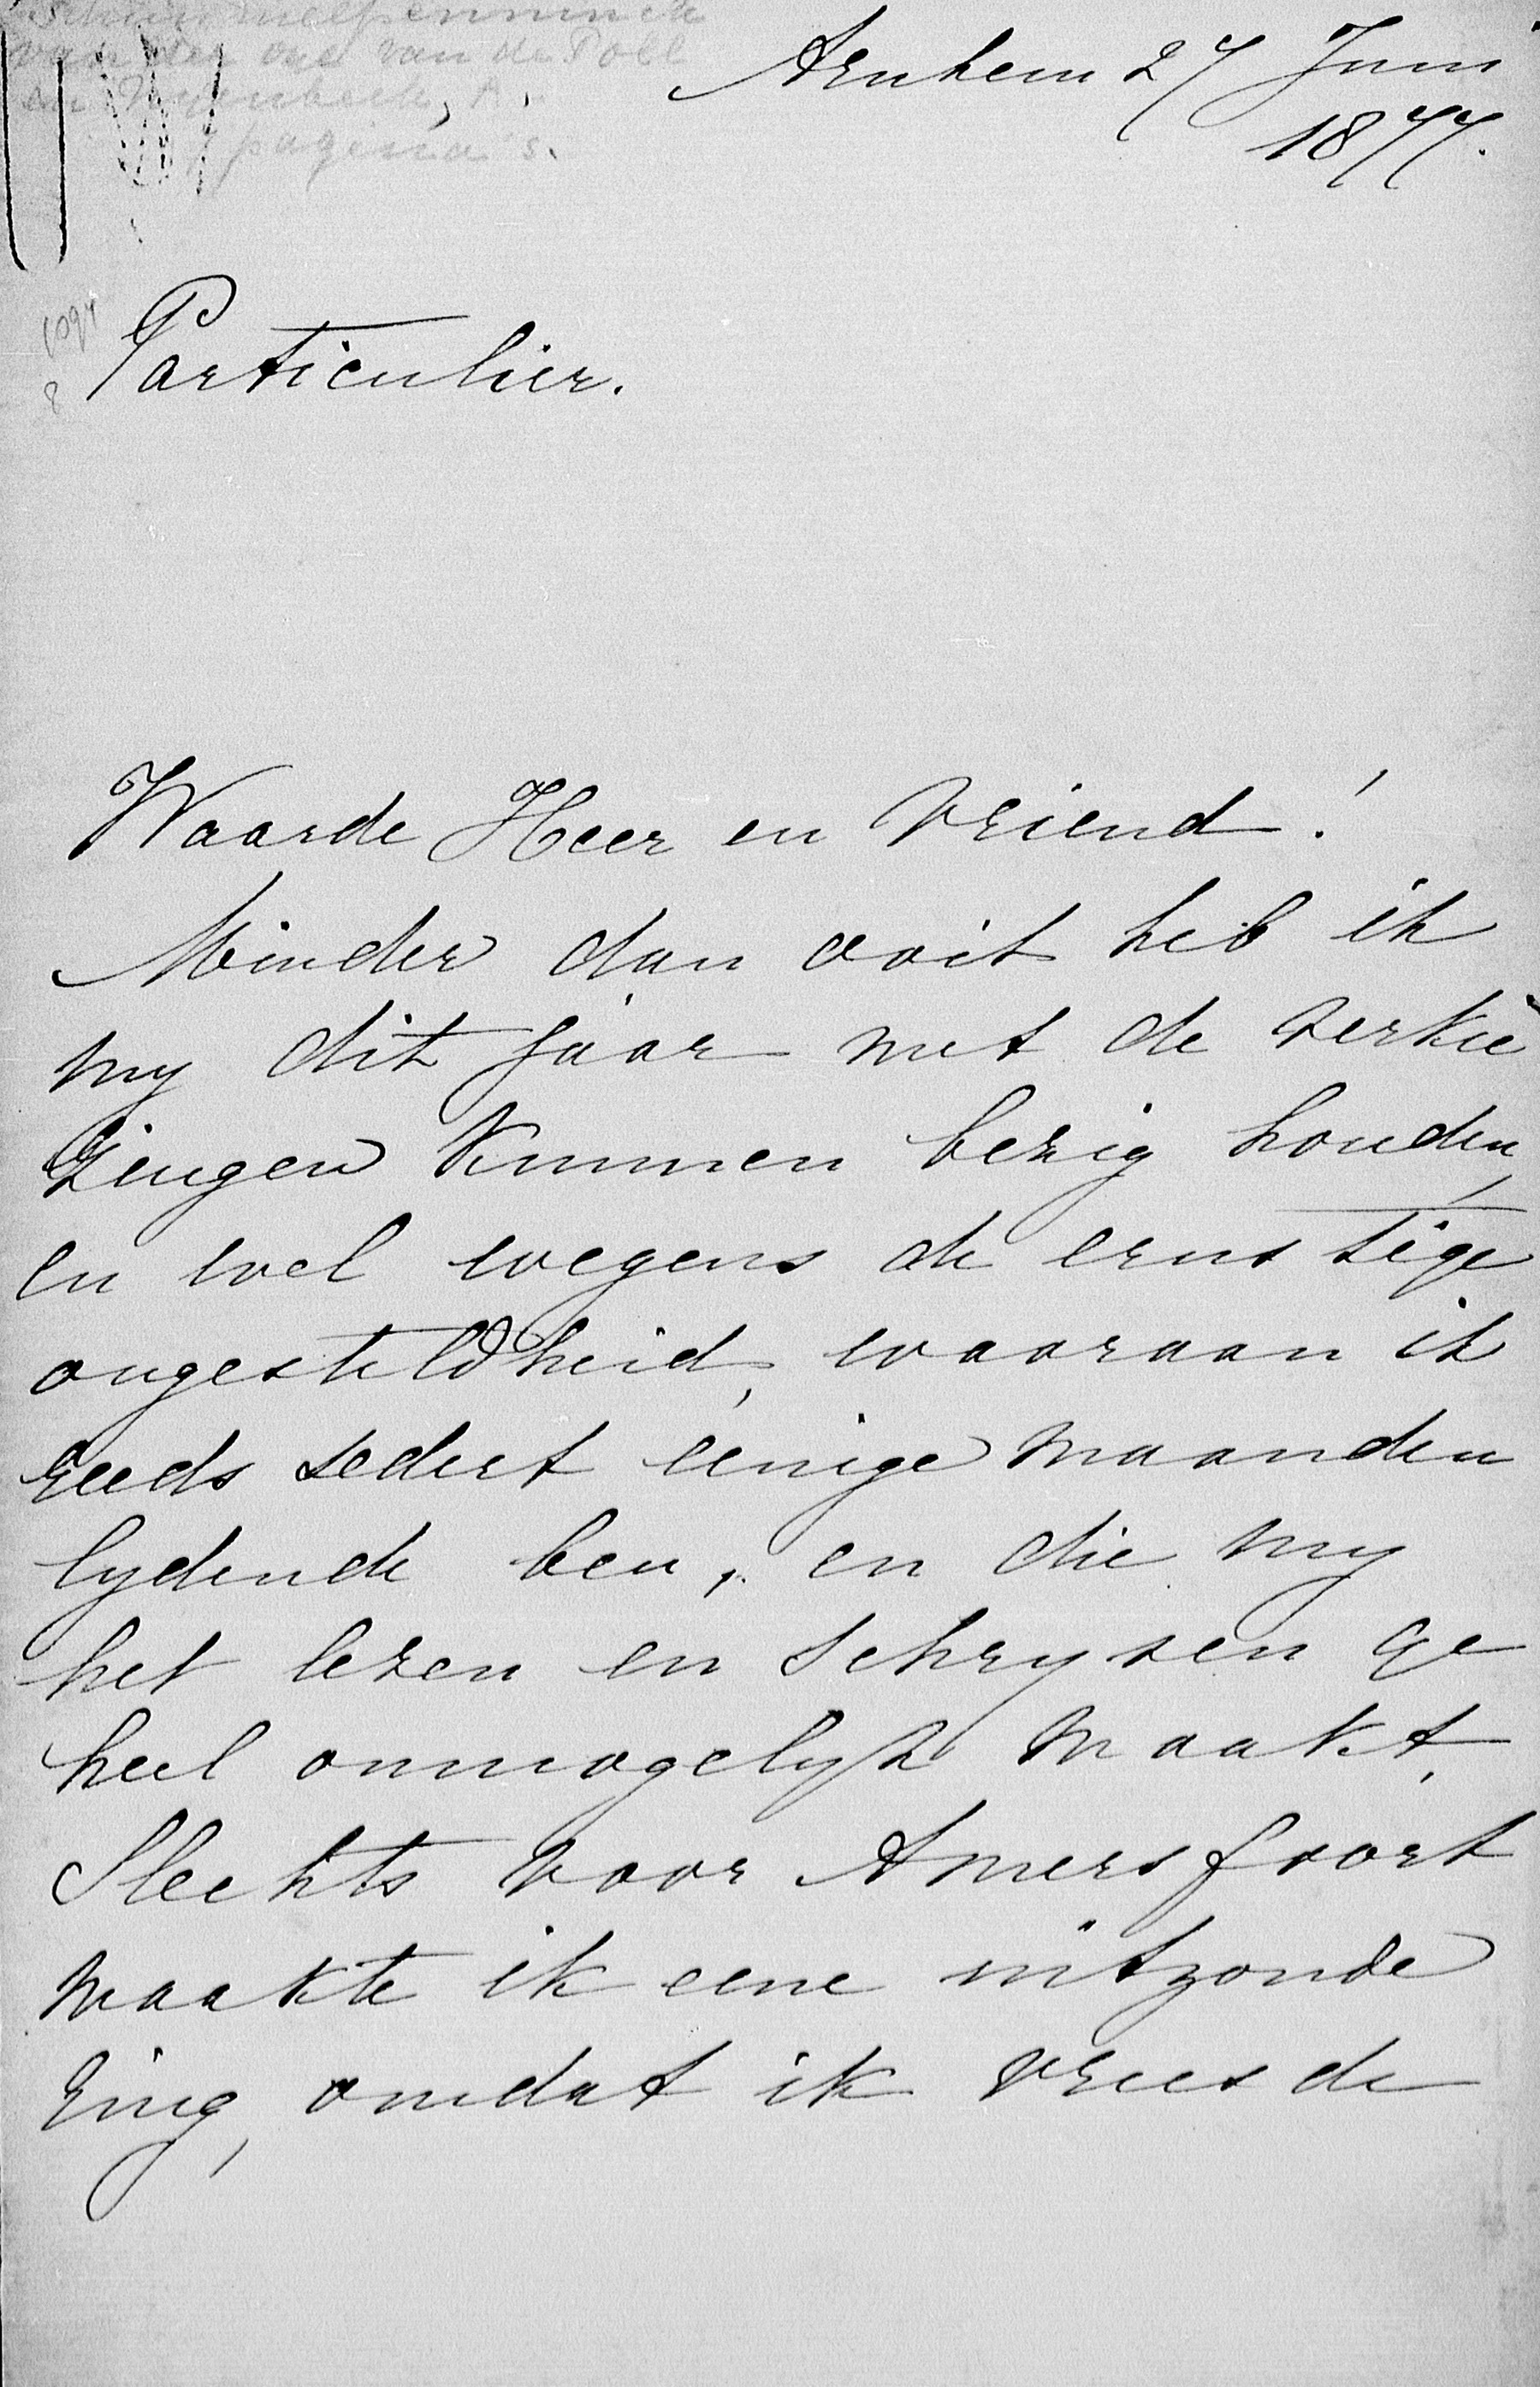 Schimmelpenninck
van der Oye van de Poll
en Nyenbeek, A.
pagina's.
Arnhem 27 Juni
1877.
Particulier.
Waarde Heer en Vriend!
Minder dan ooit heb ik
my dit jaar met de verkie
zingen kunnen bezig houden,
en wel wegens de ernstige
ongesteldheid, waaraan ik
reeds sedert eenige maanden
lydende ben, en die my
het lezen en schryven ge
heel onmogelyk maakt.
Slechts voor Amersfoort
maakte ik eene uitzonde
ring, omdat ik vreesde